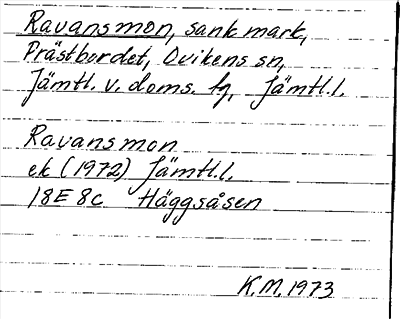 Ravansmon, sank mark,
Prästbordet, Ovikens sn,
Jämtl. v. doms. tg, Jämtl.l.
Ravansmon
ek (1972) Jämtl.l.
18E 8c Häggsåsen
K.M. 1973